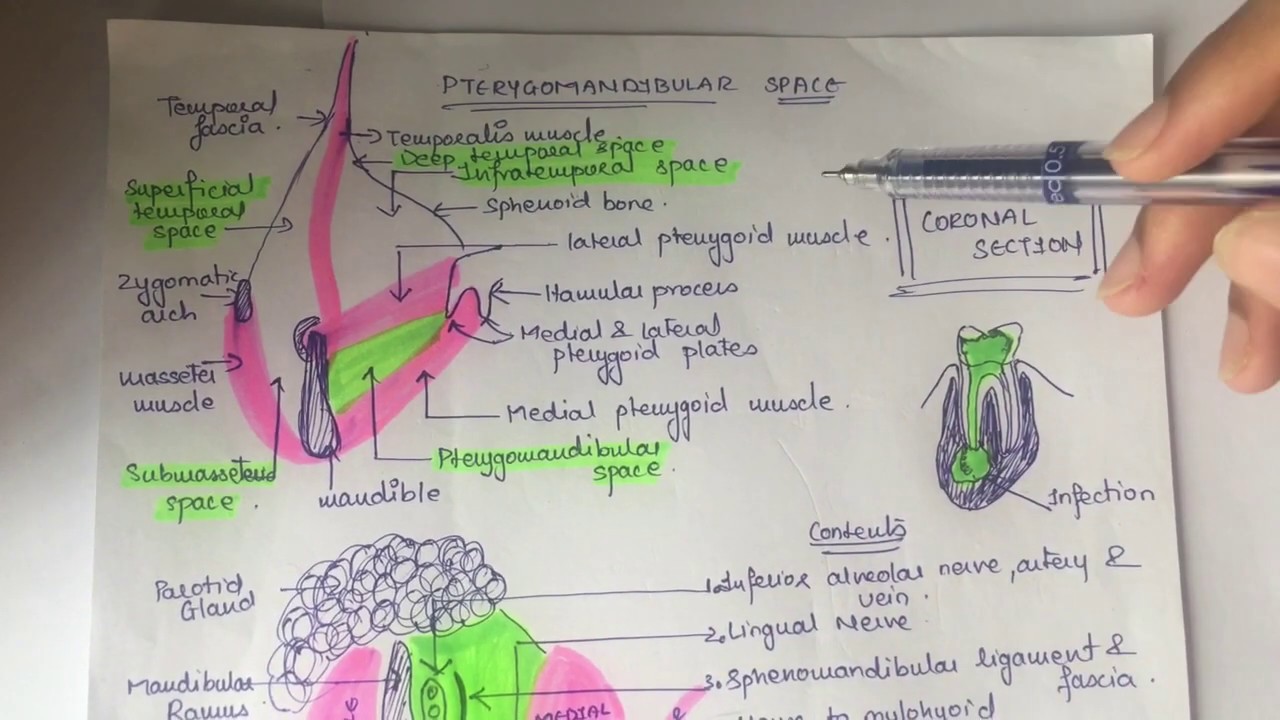 PTERYGOMANDYBULAR SPACE
Temporal
fascia.
Temporalis muscle
Deep temporal space
Infratemporal space
Superficial
temporal
space
Sphenoid bone.
lateral pterygoid muscle.
CORONAL
SECTION
Zygomatic
arch
Hamular process
Medial & lateral
pterygoid plates
masseter
muscle
Medial pterygoid muscle.
Pterygomandibular
space.
Submasseteric
space.
mandible
Infection
Contents
Parotid
Gland
1. Inferior alveolar nerve, artery &
vein.
2. Lingual Nerve
3. Sphenomandibular ligament &
fascia.
Mandibular
Ramus
MEDIAL
to mylohyoid
ec 0.5